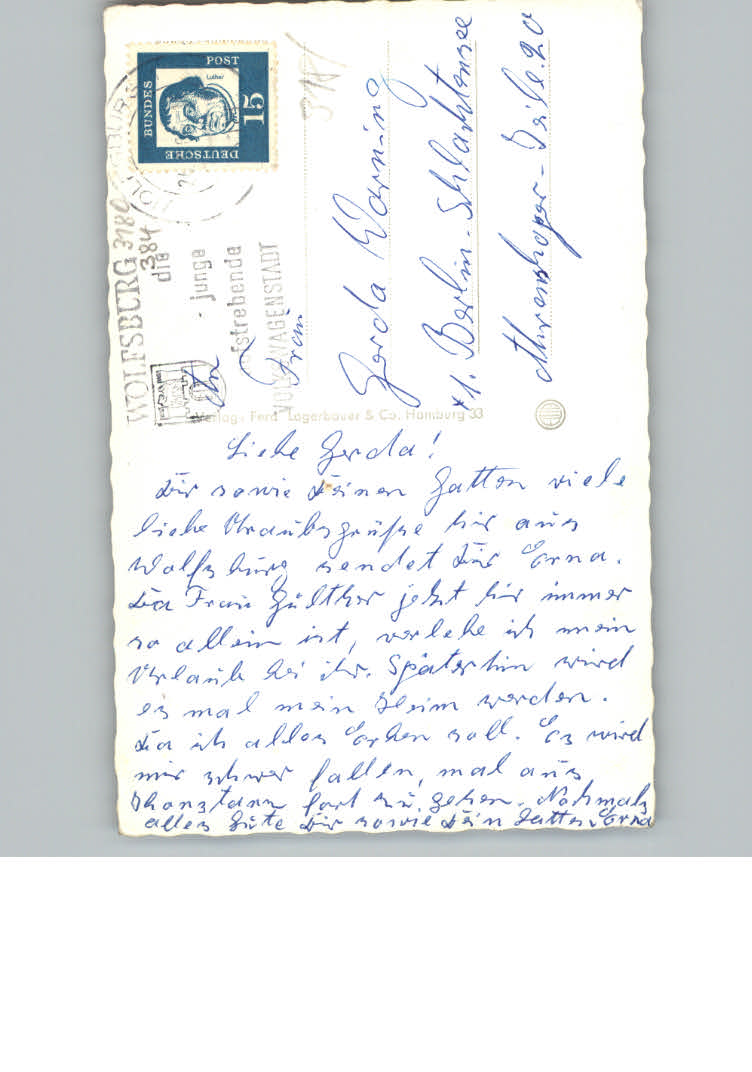 DEUTSCHE
BUNDES
POST
Luther
15
WOLFSBURG
die
junge
strebende
VOLKSWAGENSTADT
3180
384
318
An
Frau
Gerda Worning
1. Berlin-Schlachtensee
Ahrenshoper-Zeile. 20
Verlag: Ferd. Lagerbauer & Co. Hamburg 33
Liebe Gerda!
Dir sowie Deinen Gatten viele
liebe Uraubsgrüße hir aus
Wolfsburg sendet Dir Erna.
Da Frau Gülther jetzt hir immer
so allein ist, verlebe ich mein
Urlaub bei ihr. Späterhin wird
es mal mein Heim werden.
Da ich alles Erben soll. Es wird
mir schwer fallen, mal aus
fort zu gehen. Nochmals
alles Gute Dir sowie Dein Gatten Erna